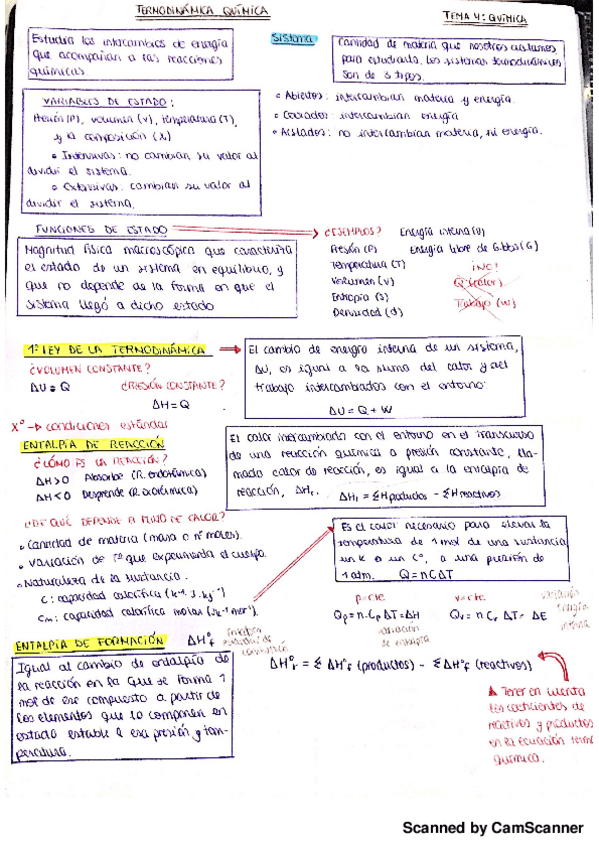 TERMODINÁMICA QUÍMICA
TEMA 4: QUÍMICA
Estudia los intercambios de energía
que acompañan a las reacciones
químicas
Sistema
Cantidad de materia que nosotros aislamos
para estudiarla. Los sistemas termodinámicos
son de 3 tipos.
• Abiertos: intercambian materia y energía.
• Cerrados: intercambian energía
• Aislados: no intercambian materia, ni energía.
VARIABLES DE ESTADO:
Presión (P), volumen (V), temperatura (T),
y la composición
• Intensivas: no cambian su valor al
dividir el sistema.
• Extensivas: cambian su valor al
dividir el sistema.
FUNCIONES DE ESTADO
Magnitud física macroscópica que caracteriza
el estado de un sistema en equilibrio, y
que no depende de la forma en que el
sistema llegó a dicho estado
¿EJEMPLOS? Energía interna (U)
Presión (P) Energía libre de Gibbs (G)
Temperatura (T) ¡NO!
Volumen (V) Q (calor)
Entropía (S) Trabajo (W)
Densidad (d)
1ª LEY DE LA TERMODINÁMICA
El cambio de energía interna de un sistema,
ΔU, es igual a la suma del calor y del
trabajo intercambiados con el entorno:
ΔU = Q + W
¿VOLUMEN CONSTANTE?
ΔU = Q
¿PRESIÓN CONSTANTE?
ΔH = Q
X° → condiciones estándar
ENTALPÍA DE REACCIÓN
El calor intercambiado con el entorno en el transcurso
de una reacción química a presión constante, lla-
mado calor de reacción, es igual a la entalpía de
reacción, ΔHr. ΔHr = ΣHproductos - ΣHreactivos
¿CÓMO ES LA REACCIÓN?
ΔH > 0 Absorbe (R. endotérmica)
ΔH < 0 Desprende (R. exotérmica)
¿DE QUÉ DEPENDE FLUJO DE CALOR?
• Cantidad de materia (masa o nº moles).
• Variación de Tª que experimenta el cuerpo.
• Naturaleza de la sustancia.
C: capacidad calorífica (K⁻¹·J·kg⁻¹)
Cm: capacidad calorífica molar (JK⁻¹mol⁻¹).
Es el calor necesario para elevar la
temperatura de 1 mol de una sustancia
un K o un C°, a una presión de
1 atm. Q = nCΔT
p = cte V = cte variación
Qp = n·Cp ΔT = ΔH Qv = n Cv ΔT = ΔE energía
variación interna
de entalpía
ENTALPÍA DE FORMACIÓN ΔH°f
Igual al cambio de entalpía de
la reacción en la que se forma 1
mol de ese compuesto a partir de
los elementos que lo componen en
estado estable a esa presión y tem-
peratura.
ΔH°r = Σ ΔH°f (productos) - Σ ΔH°f (reactivos)
⚠ Tener en cuenta
los coeficientes de
reactivos y productos
en la ecuación termo
química.
Scanned by CamScanner